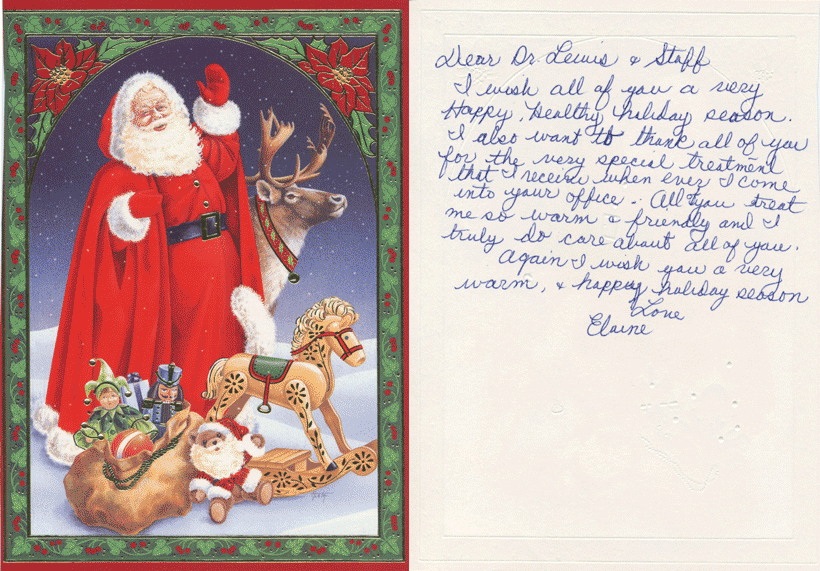 Dear Dr. Lewis & Staff
I wish all of you a very
Happy, Healthy holiday season.
I also want to thank all of you
for the very special treatment
that I receive when ever I come
into your office. All you treat
me so warm & friendly and I
truly do care about all of you.
Again I wish you a very
warm, & happy holiday season
Love
Elaine